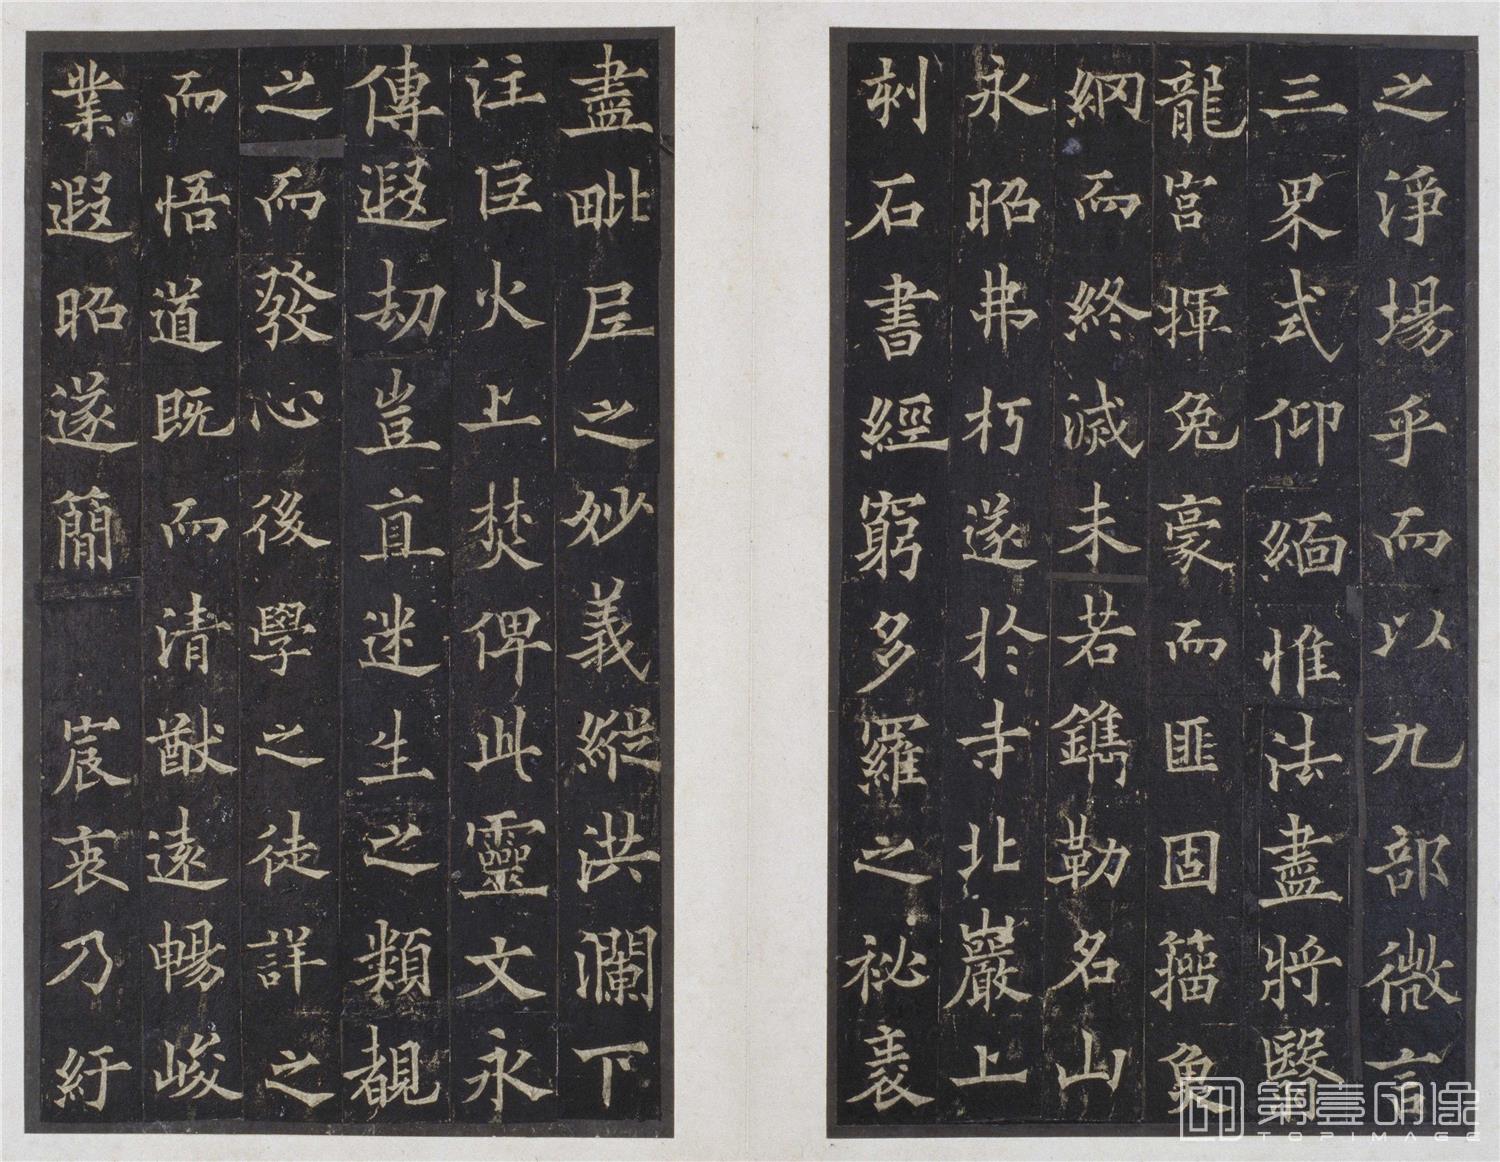 之淨場乎而以九部微言
三界式仰緬惟法盡將翳
龍宮揮兔豪而匪固籀象
網而終滅未若鐫勒名山
永昭弗朽遂於寺北巖上
刻石書經窮多羅之祕袠
盡毗尼之妙義縱洪瀾下
注巨火上焚俾此靈文永
傳遐劫豈直迷生之類覩
之而發心後學之徒詳之
而悟道既而清猷遠暢峻
業遐昭遂簡 宸衷乃紆
第壹印像
TOPIMAGE